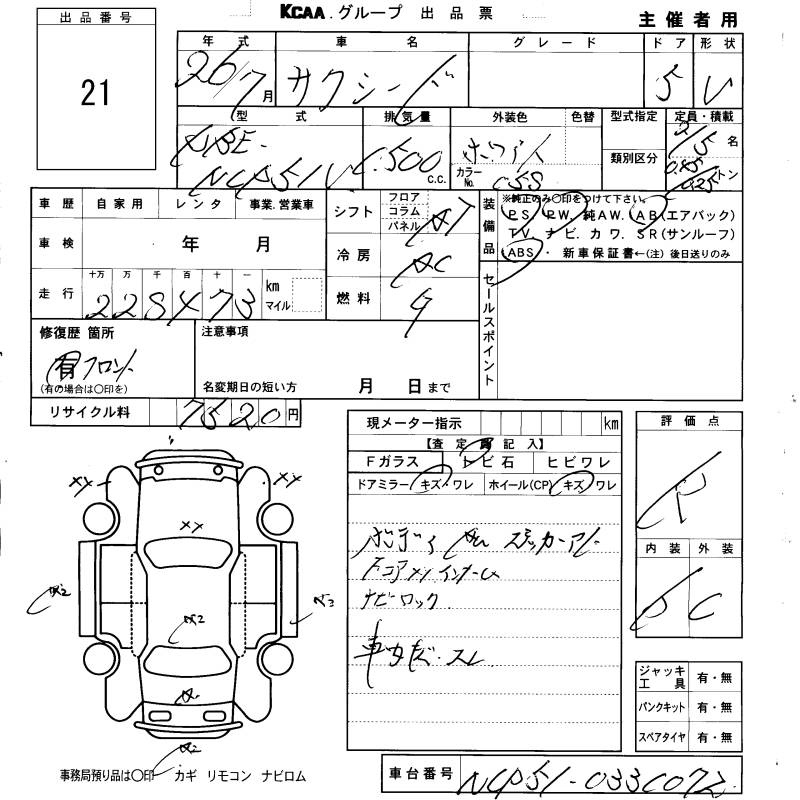 出品番号
21
KCAA.グループ 出品票
主催者用
年式 車名 グレード ドア 形状
26/7月 サクシード 5 V
型式 排気量 外装色 色替 型式指定 定員・積載
NCP51V 1,500 C.C. ホワイト
2/5名
カラーNo. 058
類別区分
トン
車歴 自家用 レンタ 事業.営業車
シフト フロア コラム パネル AT
装備品
※純正のみ○印をつけて下さい。
PS. PW. 純AW. AB(エアバック)
TV. ナビ. カワ. SR(サンルーフ)
ABS・ 新車保証書←(注) 後日送りのみ
車検 年 月
冷房 AC
走行 十万 万 千 百 十 一 km マイル
228473
燃料 G
セールスポイント
修復歴 箇所
有 フロント
(有の場合は○印を)
注意事項
名変期日の短い方 月 日まで
リサイクル料 7520円
現メーター指示 km
【査定員記入】
Fガラス トビ石 ヒビワレ
ドアミラー キズ・ワレ ホイール(CP) キズ・ワレ
ナビロック
評価点
R
内装 外装
D C
XX XX
XX
ジャッキ工具 有・無
パンクキット 有・無
スペアタイヤ 有・無
事務局預り品は○印 カギ リモコン ナビロム
車台番号 NCP51-0330072